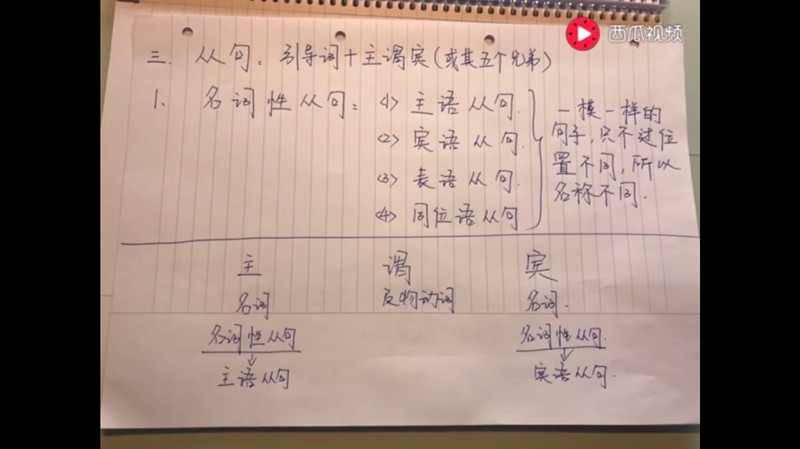 西瓜视频
三. 从句. 引导词+主谓宾(或其五个兄弟)
1. 名词性从句: <1> 主语从句.
<2> 宾语从句.
<3> 表语从句.
<4> 同位语从句
一模一样的
句子,只不过位
置不同,所以
名称不同.
主 谓 宾
名词 及物动词 名词.
名词性从句 名词性从句.
主语从句 宾语从句.